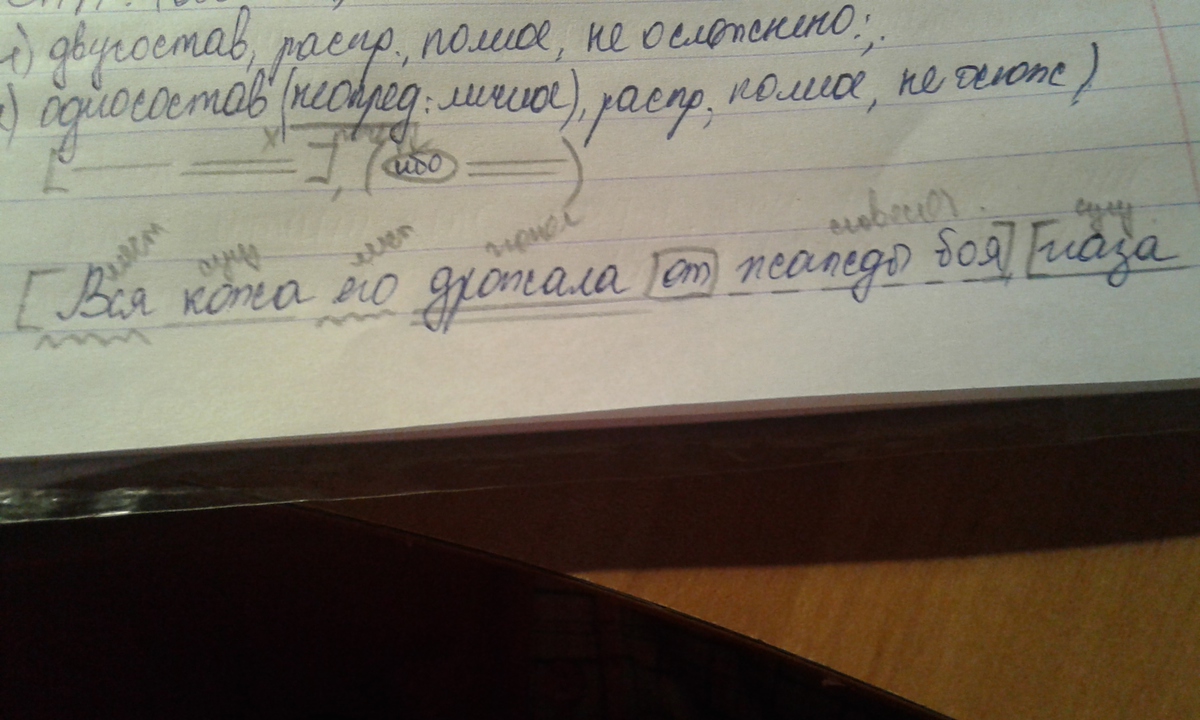 1) двусостав, распр., полное, не осложнено;
односостав (неопред: личное), распр, полное, не ослож)
х
[ ], (ибо )
мест сущ мест глагол словосоч. сущ
[Вся кожа его дрожала от жажды боя] [глаза